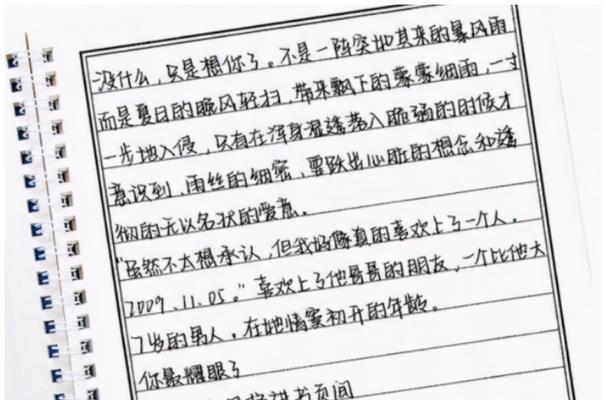 没什么，只是想你了。不是一阵突如其来的暴风雨
而是夏日的晚风轻扫，带来飘下的蒙蒙细雨，一寸
一步地入侵，只有在浑身湿透落入脆弱的时候才
意识到，雨丝的细密，要跃出心脏的想念和透
彻的无以名状的爱意。
"虽然不太想承认，但我好像真的喜欢上了一个人。
2009.11.05。"喜欢上了他哥哥的朋友，一个比他大
7岁的男人，在她情窦初开的年龄。
你最耀眼了
书页间